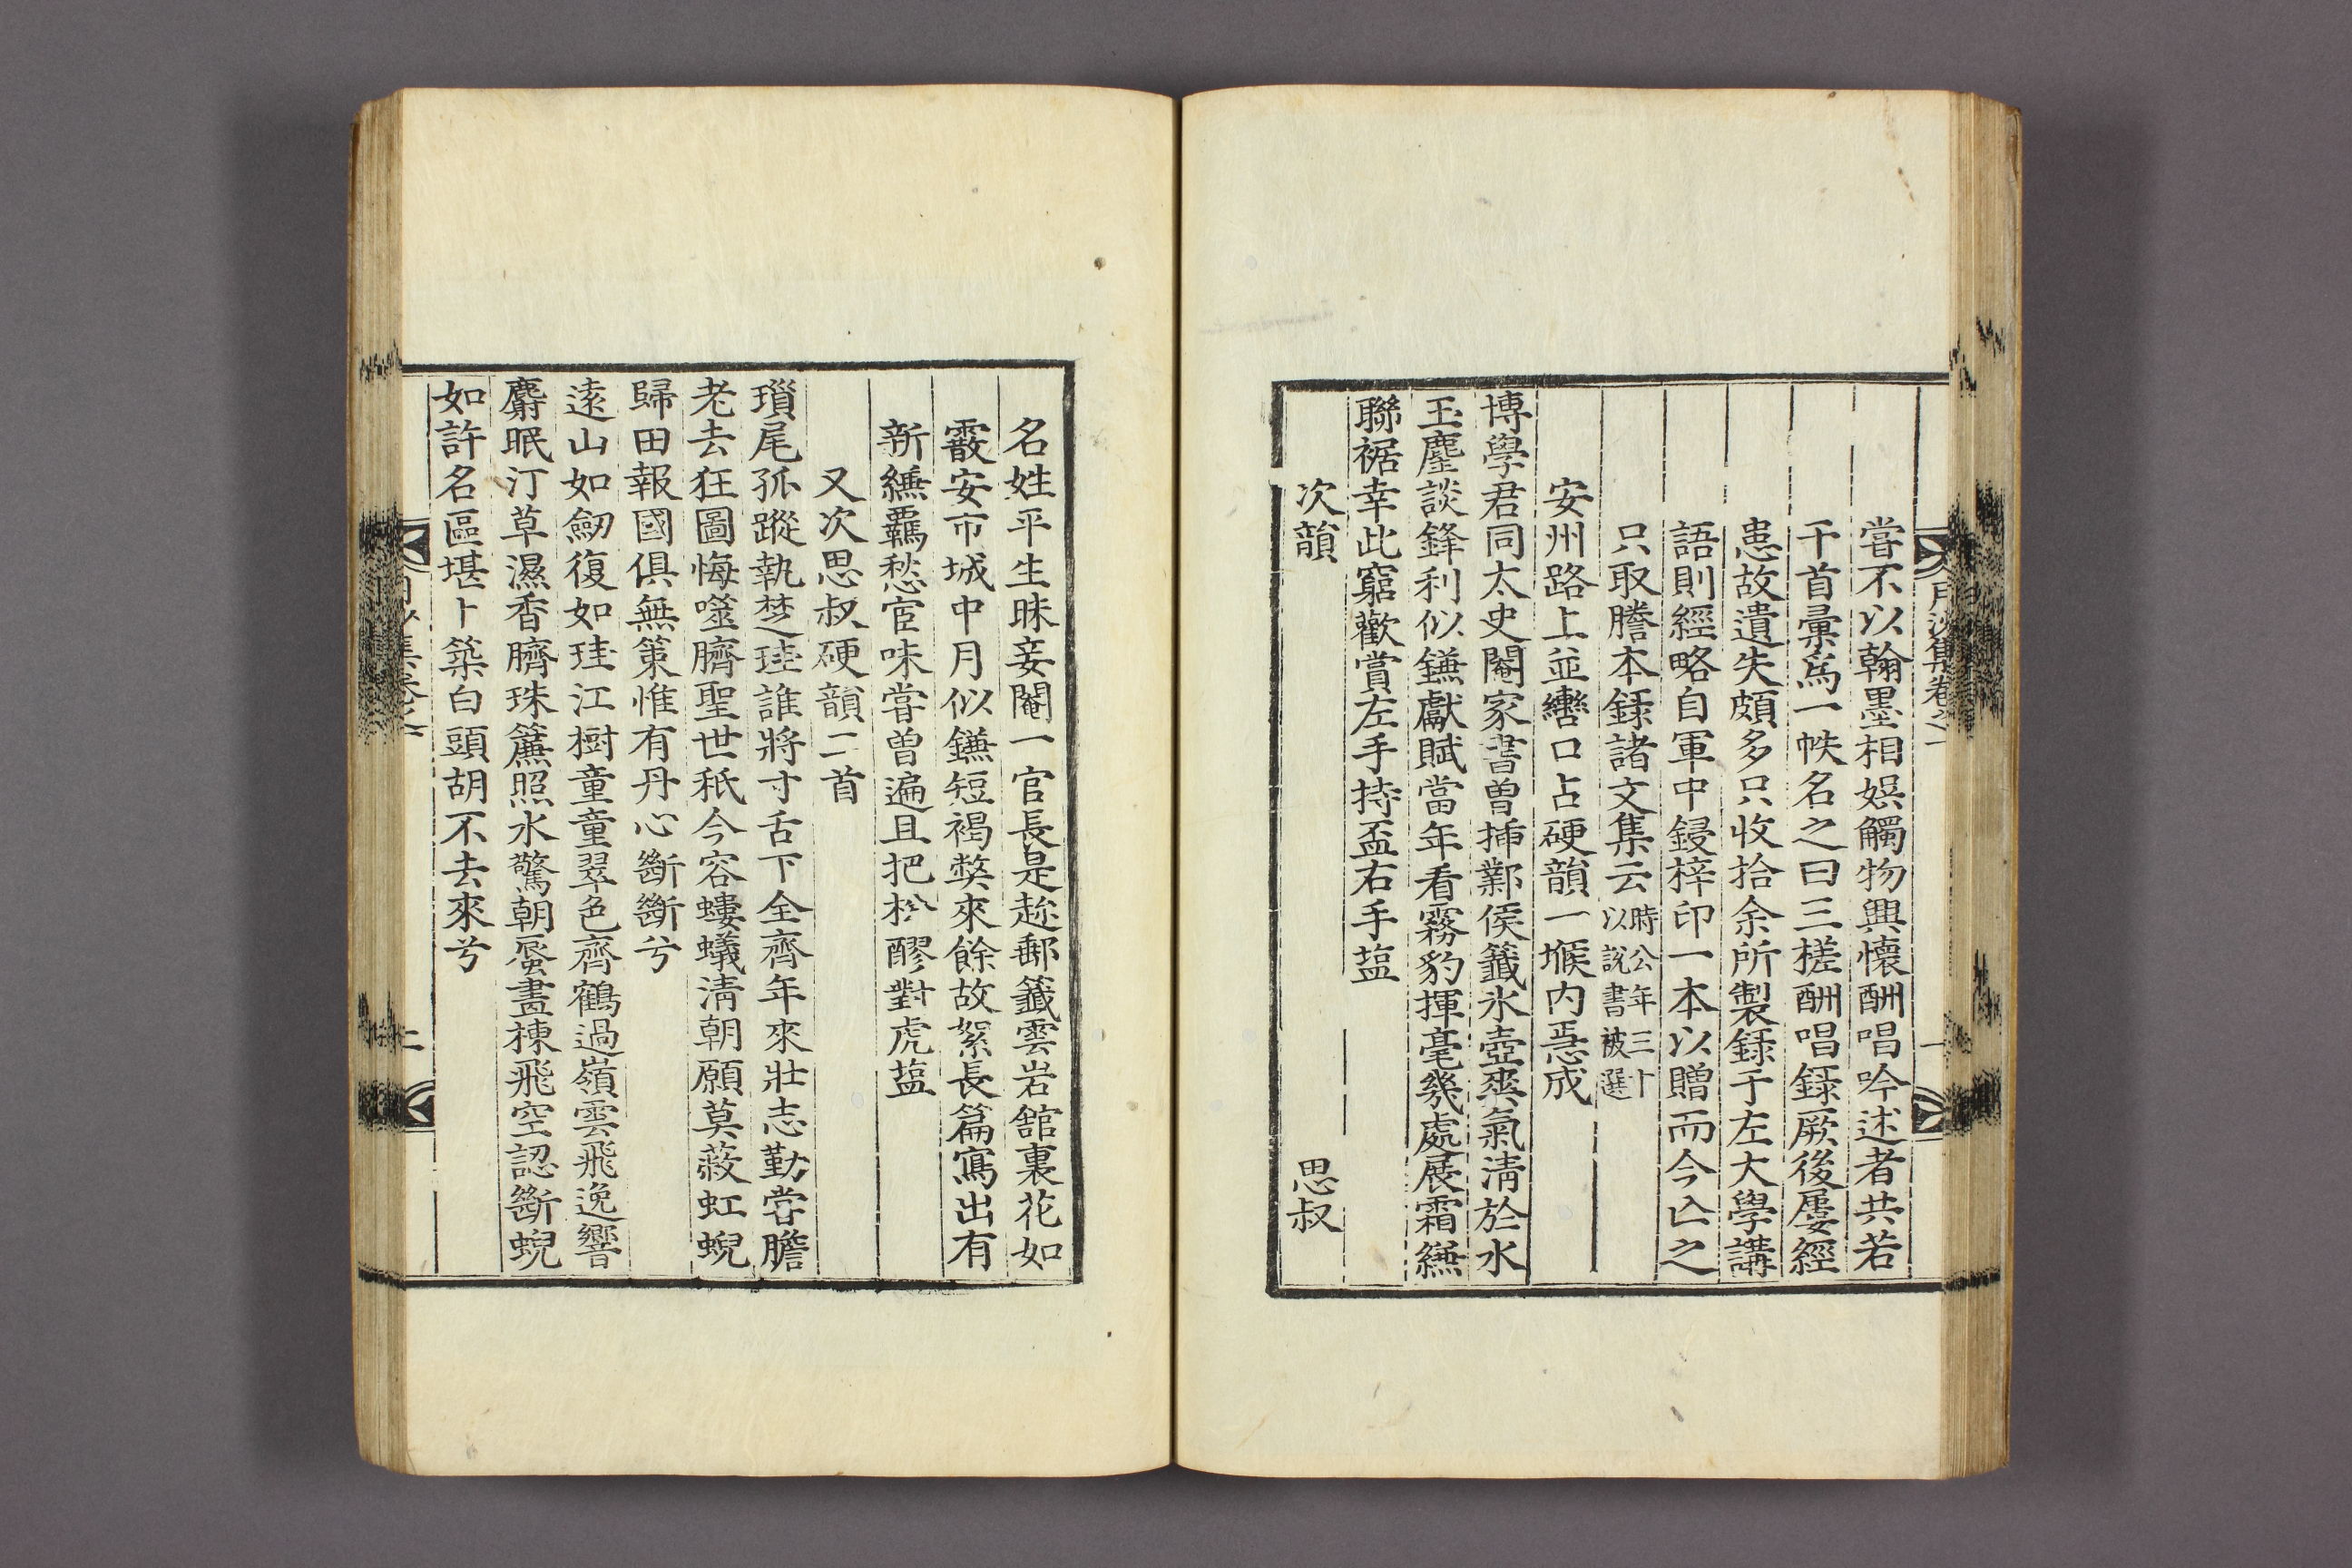 月沙集卷之一
一
嘗不以翰墨相娛觸物興懷酬唱吟述者共若
干首彙爲一帙名之曰三槎酬唱錄厥後屢經
患故遺失頗多只收拾余所製錄于左大學講
語則經略自軍中鋟梓印一本以贈而今亾之
只取謄本錄諸文集云時公年三十以說書被選
安州路上並轡口占硬韻一堠內忝成
博學君同太史閹家書曾揷鄴侯籤氷壺爽氣淸於水
玉麈談鋒利似鐮獻賦當年看霧豹揮毫幾處展霜縑
聯裾幸此窮歡賞左手持盃右手䀋
次韻 思叔
名姓平生昧妾閹一官長是趂郵籤雲岩舘裏花如
霰安市城中月似鐮短褐獘來餘故絮長篇寫出有
新縑羈愁宦味嘗曾遍且把松醪對虎䀋
又次思叔硬韻二首
瑣尾孤蹤執楚珪誰將寸舌下全齊年來壯志勤甞膽
老去狂圖悔噬臍聖世秪今容螻蟻淸朝願莫蔽虹蜺
歸田報國俱無策惟有丹心斷斷兮
遠山如劒復如珪江樹童童翠色齊鶴過嶺雲飛逸響
麝眠汀草濕香臍珠簾照水驚朝蜃畫棟飛空認斷蜺
如許名區堪卜築白頭胡不去來兮
集卷之
二